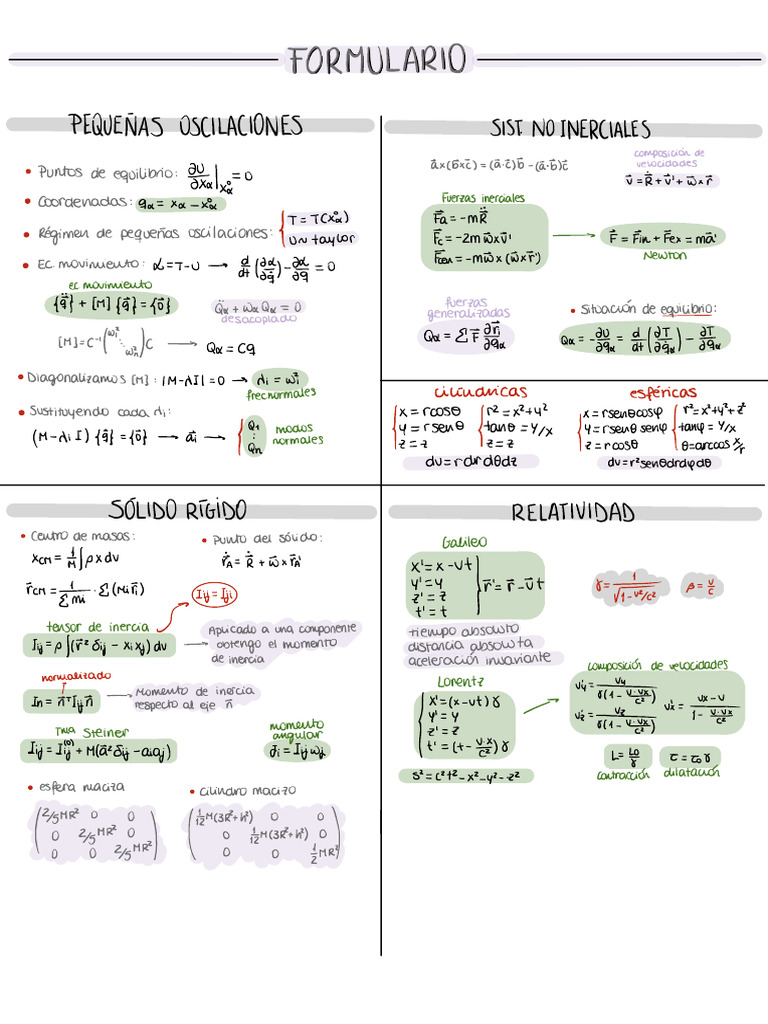 FORMULARIO
PEQUEÑAS OSCILACIONES
• Puntos de equilibrio: ∂U/∂xα |x°α = 0
• Coordenadas: qα = xα − x°α
• Régimen de pequeñas oscilaciones: { T = T(x°α)
U ~ taylor
• Ec. movimiento: ℒ = T − U → d/dt (∂ℒ/∂q̇) − ∂ℒ/∂q = 0
ec movimiento
{q̈} + [M] {q} = {0}
Q̈α + ωα Qα = 0
desacoplado
[M] = C⁻¹ (ω₁² ⋱ ωn²) C → Qα = Cq
• Diagonalizamos [M]: |M − λI| = 0 → λi = ωi²
frec normales
• Sustituyendo cada λi:
(M − λi I) {q} = {0} → a⃗i → { Q1 ⋮ Qn
modos
normales
SIST. NO INERCIALES
a⃗ x (b⃗ x c⃗) = (a⃗·c⃗)b⃗ − (a⃗·b⃗)c⃗
composición de
velocidades
v⃗ = Ṙ + v⃗' + ω⃗ x r⃗
Fuerzas inerciales
F⃗a = −m R̈
F⃗c = −2m ω⃗ x v⃗'
F⃗cen = −m ω⃗ x (ω⃗ x r⃗')
→ F⃗ = F⃗in + F⃗ex = m a⃗'
Newton
fuerzas
generalizadas
Qα = Σ F⃗ ∂r⃗i/∂qα
• Situación de equilibrio:
Qα = −∂U/∂qα = d/dt (∂T/∂q̇α) − ∂T/∂qα
cilíndricas
x = r cosθ
y = r senθ
z = z
r² = x² + y²
tanθ = y/x
z = z
dv = r dr dθ dz
esféricas
x = r senθ cosφ
y = r senθ senφ
z = r cosθ
r² = x² + y² + z²
tanφ = y/x
θ = arccos x/r
dv = r² senθ dr dφ dθ
SÓLIDO RÍGIDO
• Centro de masas:
xCM = 1/M ∫ρ x dv
r⃗CM = 1/Σmi · Σ(mi r⃗i)
• Punto del sólido:
ṙA = Ṙ + ω⃗ x r⃗A'
Iij = Iji
tensor de inercia
Iij = ρ ∫(r⃗² δij − xi xj) dv
→ Aplicado a una componente
obtengo el momento
de inercia
normalizado
In = n⃗ᵀ I ij n⃗
→ Momento de inercia
respecto al eje n⃗
Tma Steiner
Iij = Iij⁽⁰⁾ + M(a⃗² δij − ai aj)
momento
angular
Ji = Iij ωj
• esfera maciza
(2/5 MR² 0 0
0 2/5 MR² 0
0 0 2/5 MR²)
• cilindro macizo
(1/12 M(3R² + h²) 0 0
0 1/12 M(3R² + h²) 0
0 0 1/2 MR²)
RELATIVIDAD
Galileo
x' = x − vt
y' = y
z' = z
t' = t
r⃗' = r⃗ − v⃗t
γ = 1/√(1 − v²/c²)
β = v/c
tiempo absoluto
distancia absoluta
aceleración invariante
Lorentz
x' = (x − vt) γ
y' = y
z' = z
t' = (t − v·x/c²) γ
S² = c²t² − x² − y² − z²
composición de velocidades
v'y = vy/γ(1 − v·vx/c²)
v'z = vz/γ(1 − v·vx/c²)
v'x = vx − v/1 − v·vx/c²
L = L0/γ
contracción
τ = τ0 γ
dilatación